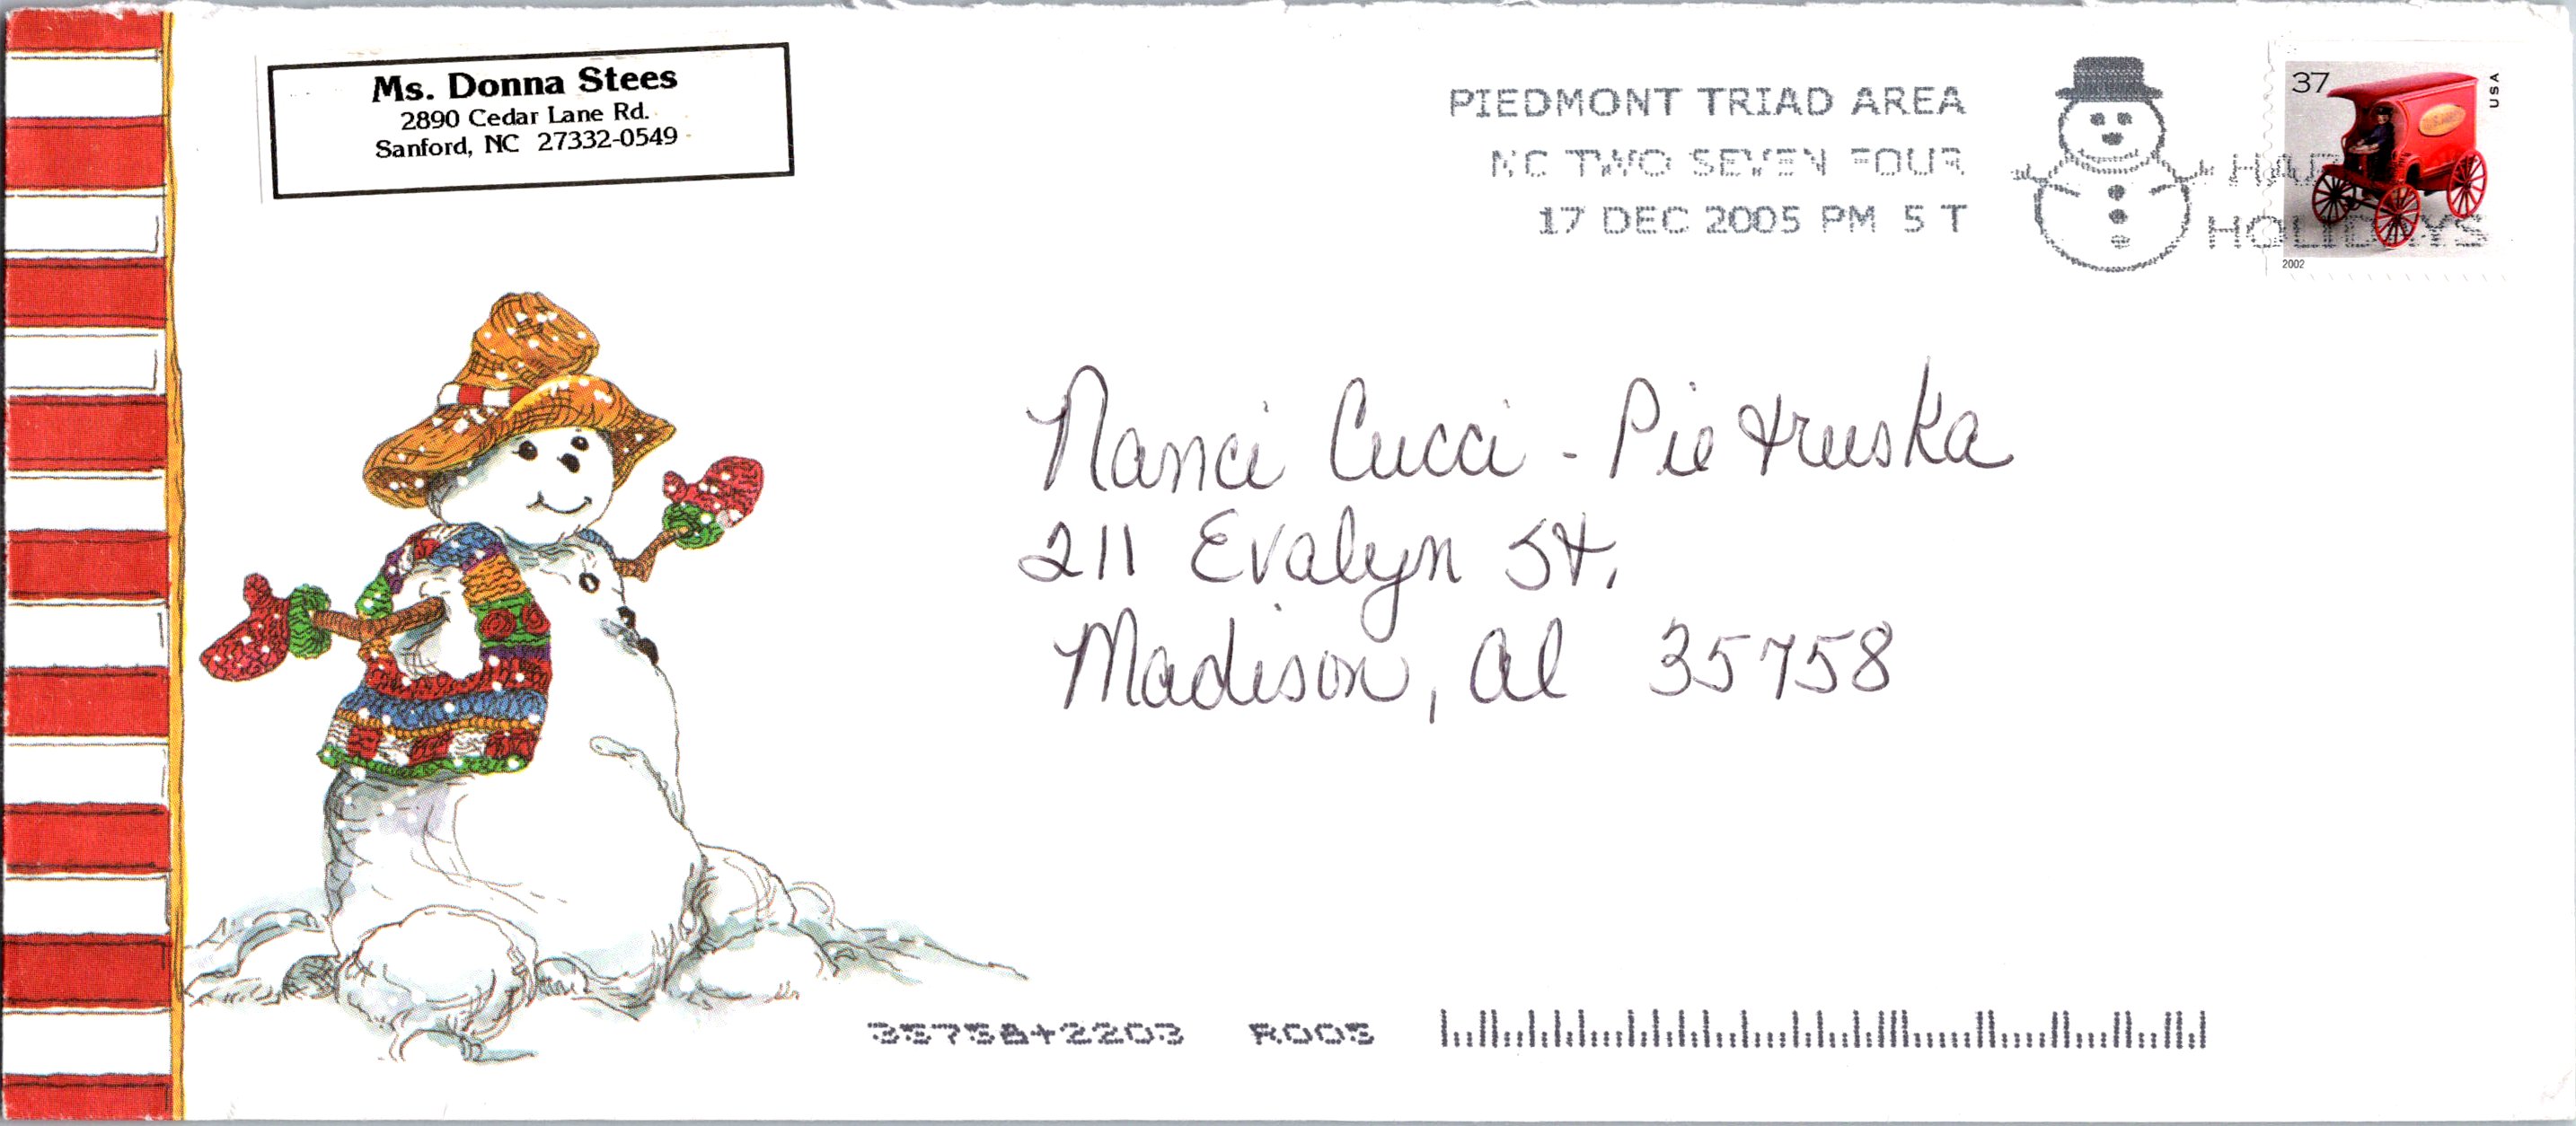 Ms. Donna Stees
2890 Cedar Lane Rd.
Sanford, NC 27332-0549
PIEDMONT TRIAD AREA
NC TWO SEVEN FOUR
17 DEC 2005 PM 5 T
HOLIDAYS
37
USA
2002
Nanci Cucci - Pietruska
211 Evalyn St.
Madison, Al 35758
35758+2203 R005